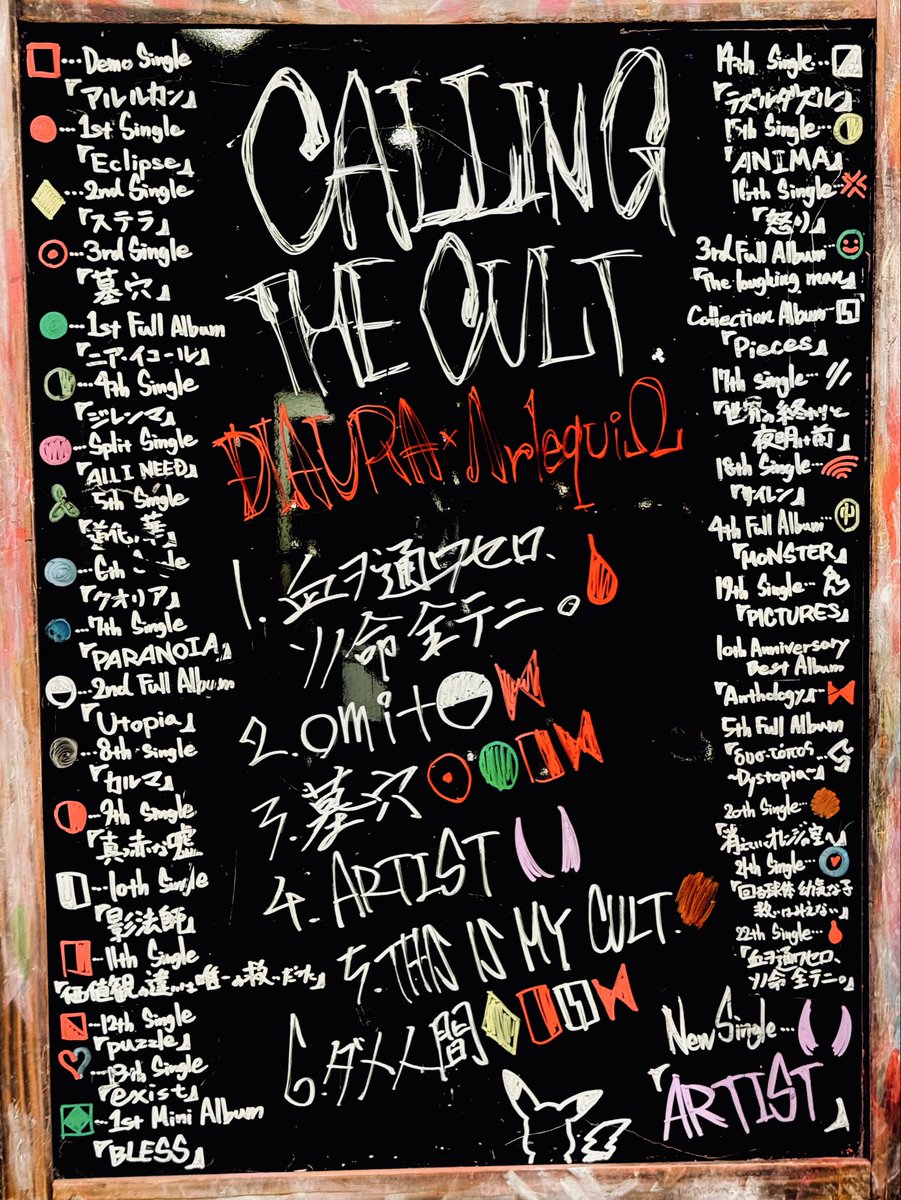 Demo Single
『アルルカン』
1st Single
『Eclipse』
2nd Single
『ステラ』
3rd Single
『墓穴』
1st Full Album
『ニア・イコール』
4th Single
『ジレンマ』
Split Single
『ALL I NEED』
5th Single
『道化ノ華』
6th
『クオリア』
7th Single
『PARANOIA』
2nd Full Album
『Utopia』
8th Single
『カルマ』
9th Single
『真っ赤な嘘』
10th Single
『影法師』
11th Single
『価値観の違いは唯一の救いだった』
12th Single
『puzzle』
13th Single
『exist』
1st Mini Album
『BLESS』
CALLING
THE CULT.
DIAURA×ArlequiΩ
1. 血ヲ通ワセロ、
ソノ命全テニ。
2. omit
3. 墓穴
4. ARTIST
5. THIS IS MY CULT.
6. ダメ人間
14th Single
『ラズルダズル』
15th Single
『ANIMA』
16th Single
『怒り』
3rd Full Album
『The laughing man』
Collection Album
『Pieces』
17th single
『世界の終わりと
夜明け前』
18th Single
『サイレン』
4th Full Album
『MONSTER』
19th Single
『PICTURES』
10th Anniversary
Best Album
『Anthology』
5th Full Album
『δυσ-τόπος
~Dystopia~』
20th Single
『消えないオレンジの空へ』
21th Single
『回る球体 幼気な子
救いは見えない』
22th Single
『血ヲ通ワセロ、
ソノ命 全テニ。』
New Single
『ARTIST』